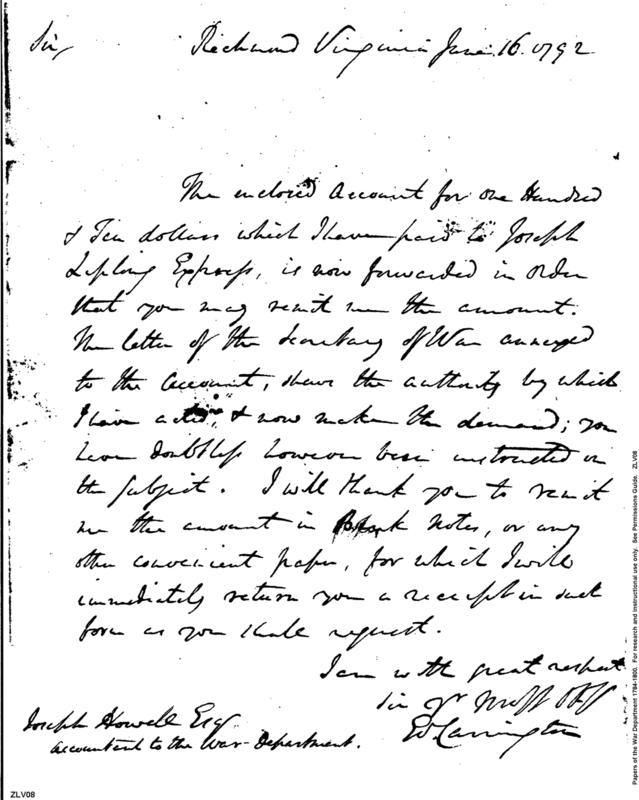 Sir, Richmond Virginia June 16. 1792
The enclosed Account for one Hundred
& Ten dollars which I have paid to Joseph
Express, is now forwarded in order
that you may remit me the amount.
The letter of the Secretary of War annexed
to the Account, shews the authority by which
I have acted, & now make the demand; you
have doubtless however been instructed on
the subject. I will thank you to remit
me the amount in Bank Notes, or any
other convenient paper, for which I will
immediately return you a receipt in such
form as you shall request.
I am with great respect
Sir Yr Most Obt
Ed. Carrington
Joseph Howell Esqr
Accountant to the War-Department.
ZLV08
Papers of the War Department 1784-1800. For research and instructional use only. See Permissions Guide. ZLV08